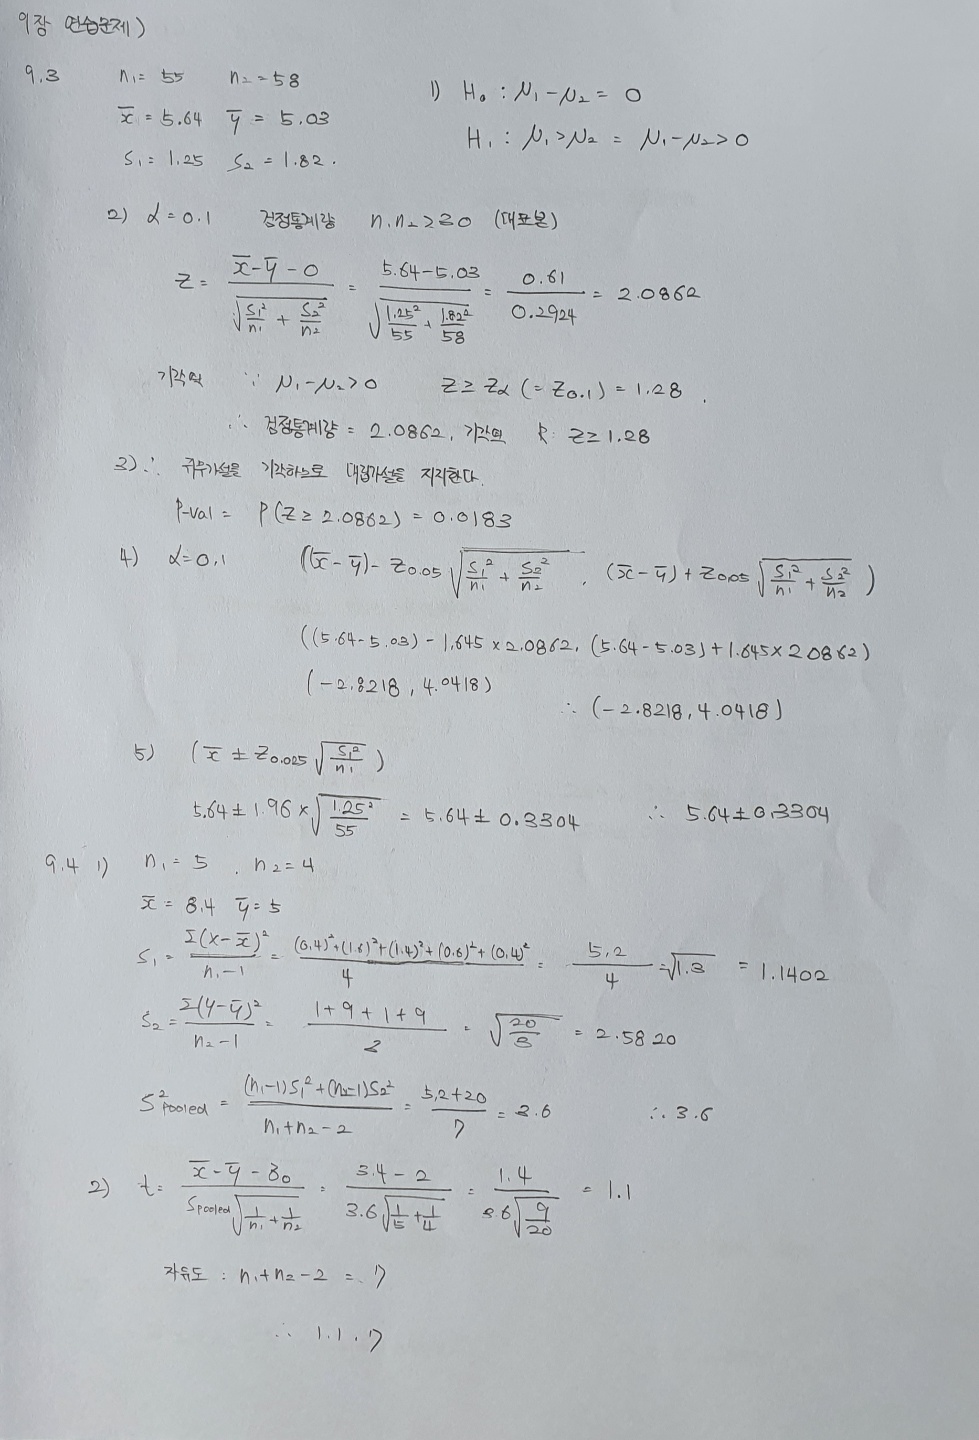 9장 연습문제)
9.3 n₁= 55 n₂ = 58
x̄ = 5.64 ȳ = 5.03
S₁ = 1.25 S₂ = 1.82.
1) H₀ : μ₁-μ₂ = 0
H₁ : μ₁>μ₂ = μ₁-μ₂>0
2) α = 0.1 검정통계량 n₁n₂≥30 (대표본)
Z = (x̄-ȳ-0)/√(S₁²/n₁ + S₂²/n₂) = (5.64-5.03)/√(1.25²/55 + 1.82²/58) = 0.61/0.2924 = 2.0862
기각역 ∵ μ₁-μ₂>0 Z≥Zα (=Z0.1) = 1.28.
∴ 검정통계량 = 2.0862, 기각역 R: Z≥1.28
3) ∴ 귀무가설을 기각하므로 대립가설을 지지한다.
P-val = P(Z≥2.0862) = 0.0183
4) α=0.1 ((x̄-ȳ)-Z0.05√(S₁²/n₁ + S₂²/n₂), (x̄-ȳ)+Z0.05√(S₁²/n₁ + S₂²/n₂))
((5.64-5.03)-1.645×2.0862, (5.64-5.03)+1.645×2.0862)
(-2.8218, 4.0418)
∴ (-2.8218, 4.0418)
5) (x̄ ± Z0.025√(S₁²/n₁))
5.64±1.96×√(1.25²/55) = 5.64±0.3304 ∴ 5.64±0.3304
9.4 1) n₁=5, n₂=4
x̄ = 8.4 ȳ=5
S₁ = Σ(x-x̄)²/(n₁-1) = ((0.4)²+(1.6)²+(1.4)²+(0.6)²+(0.4)²)/4 = 5.2/4 = √1.3 = 1.1402
S₂ = Σ(y-ȳ)²/(n₂-1) = (1+9+1+9)/3 = √(20/3) = 2.5820
S²pooled = ((n₁-1)S₁²+(n₂-1)S₂²)/(n₁+n₂-2) = (5.2+20)/7 = 3.6 ∴ 3.6
2) t = (x̄-ȳ-δ₀)/(Spooled√(1/n₁ + 1/n₂)) = (3.4-2)/(3.6√(1/5+1/4)) = 1.4/(3.6√(9/20)) = 1.1
자유도 : n₁+n₂-2 = 7
∴ 1.1, 7